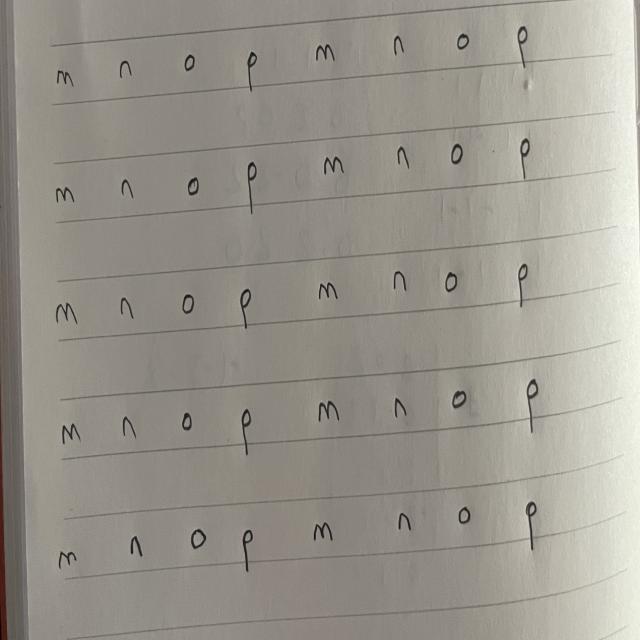 m n o p m n o p
m n o p m n o p
m n o p m n o p
m n o p m n o p
m n o p m n o p